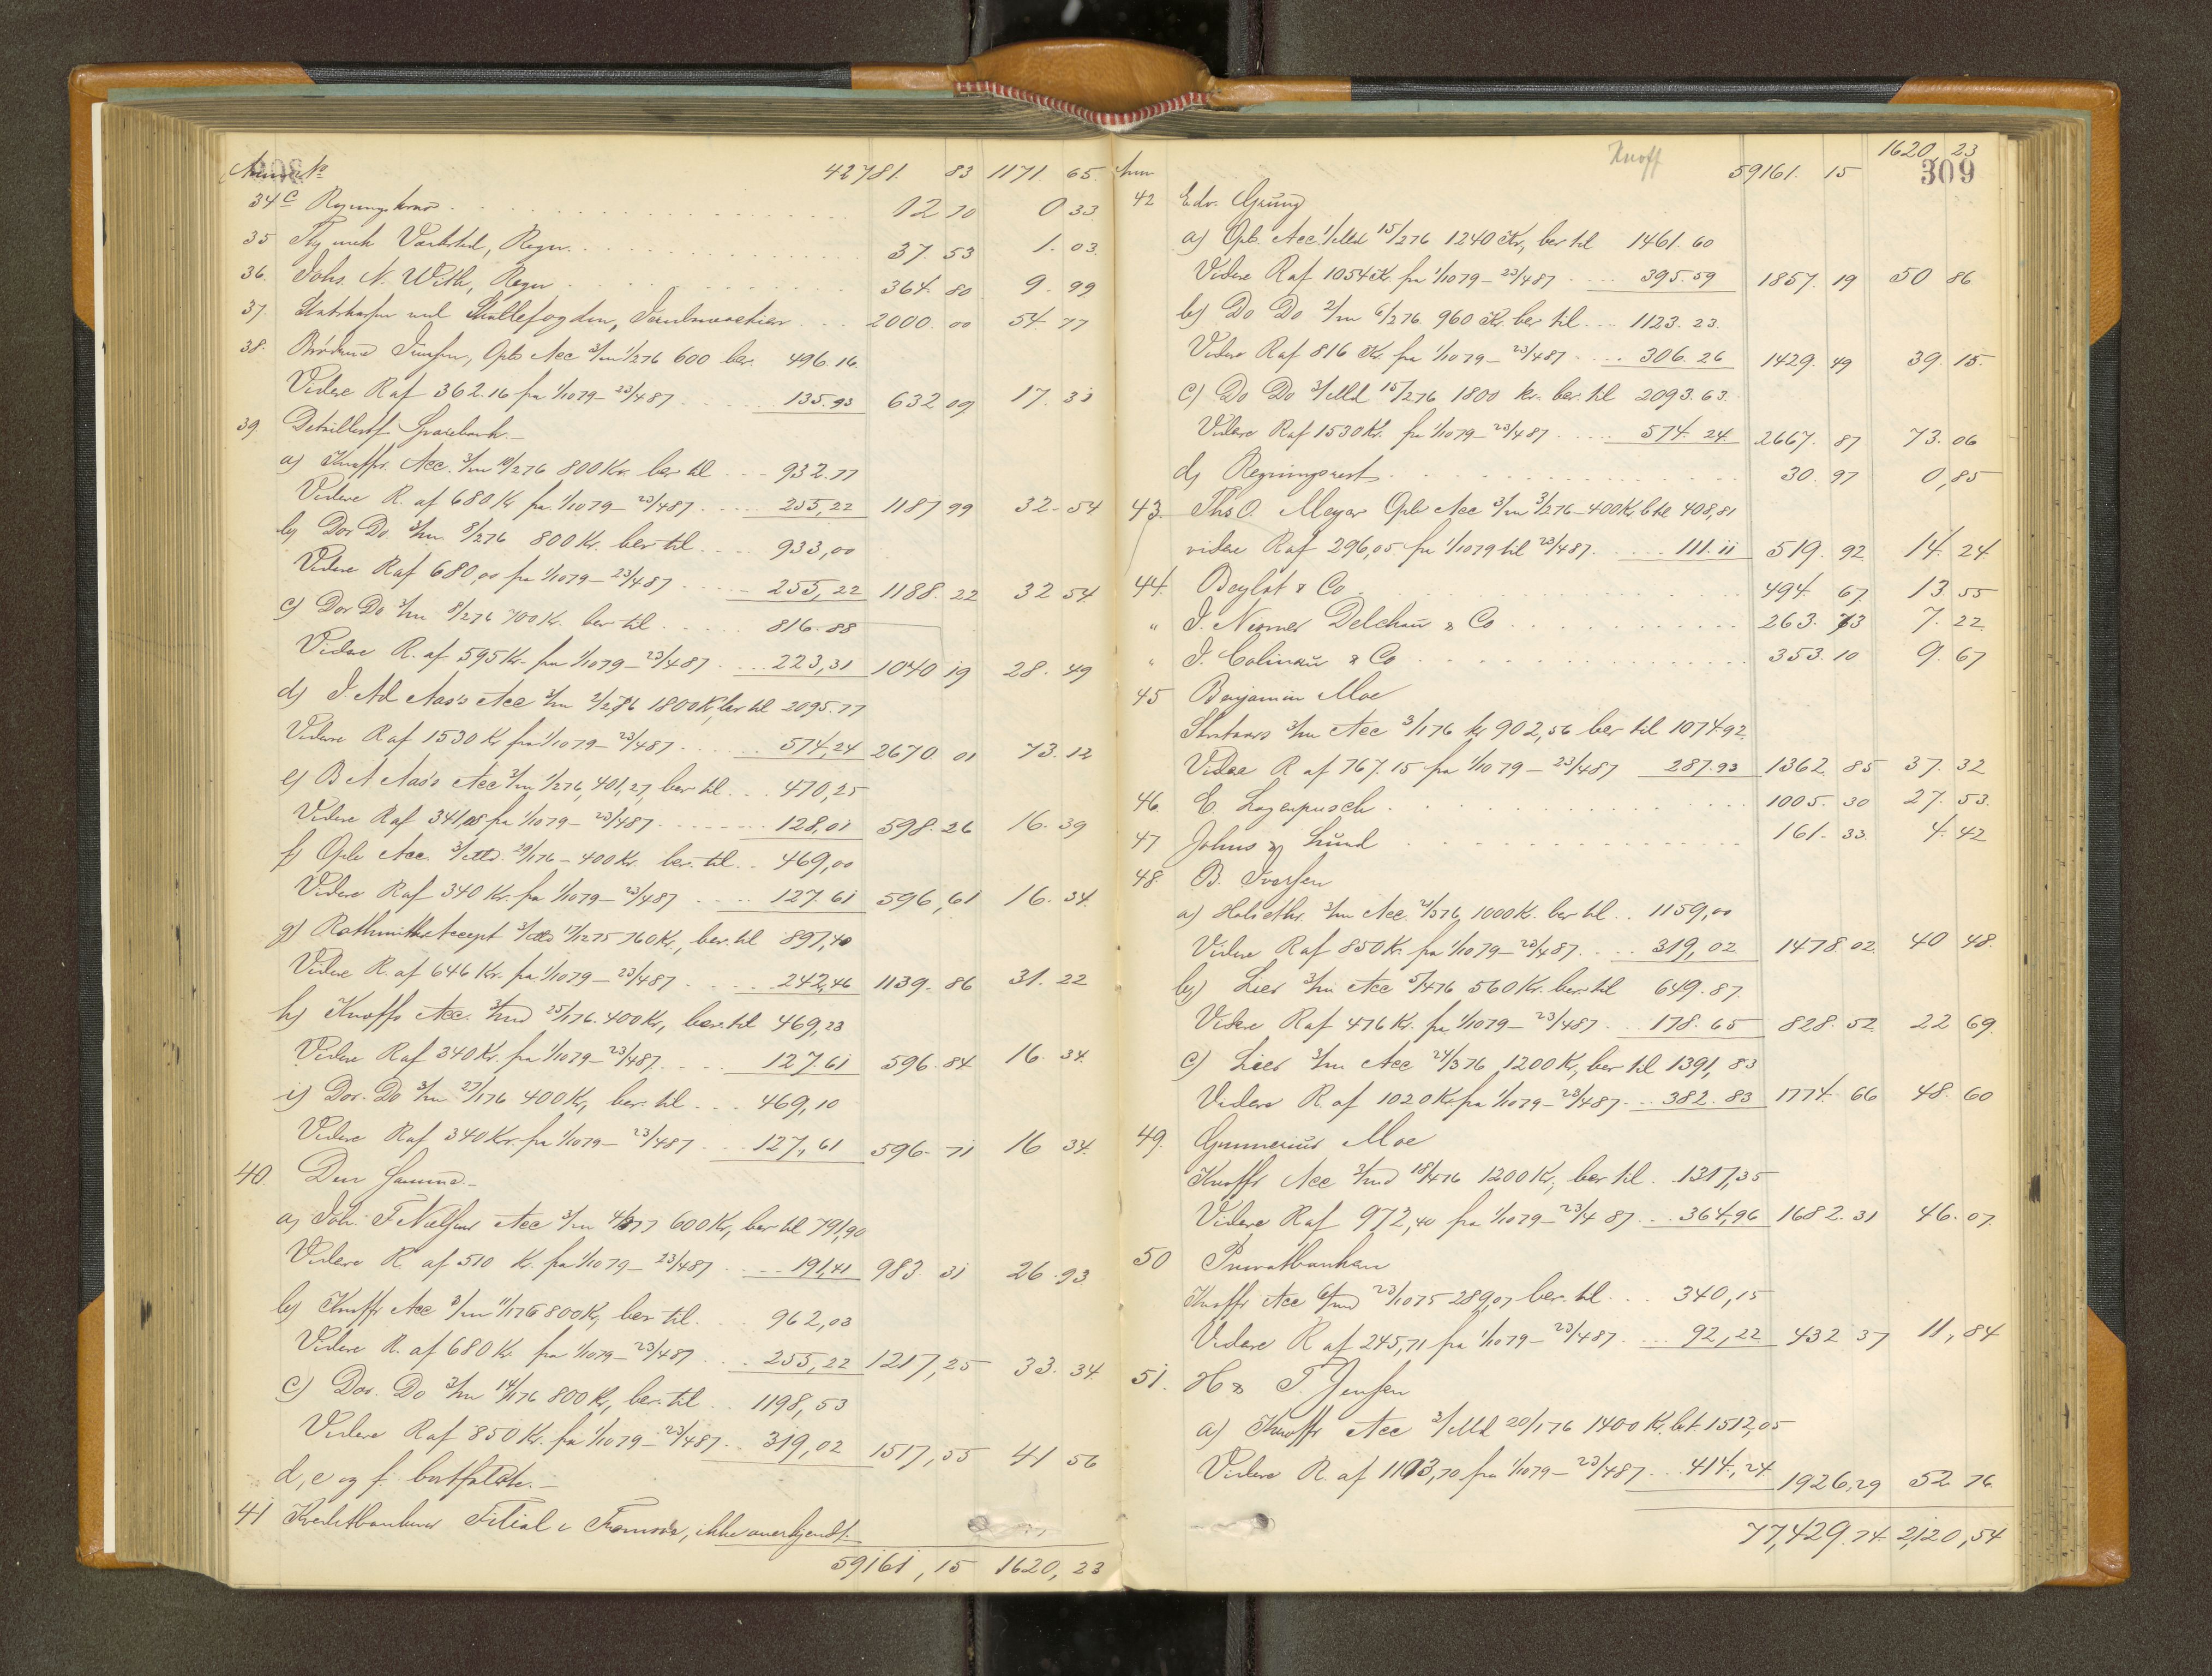 308 No 42781. 83 1171. 65.
34c Regningskrav 12 10 0 33
35 Værksted, Regn. 37. 53 1. 03.
36. Johs. N. With, Regn 364. 80 9. 99
37. Statskassen ved 2000. 00 54. 77
38. Brødrene Opb Acc 3/m 1/2 76 600 ber. 496.16.
Videre R af 362.16 fra 1/10 79 – 23/4 87 135.93 632 09 17. 31
39 Sparebank.–
a) Knoffs Acc. 3/m 10/2 76 800 Kr. ber til 932.77
Videre R. af 680 Kr fra 1/10 79 – 23/4 87 255,22 1187 99 32-54
b) Dos Do. 3/m 8/2 76 800 Kr. ber til 933,00
Videre R af 680,00 fra 1/10 79 – 23/4 87 255,22 1188. 22 32 54.
c) Dos Do 3/m 8/2 76 700 Kr. ber til 816.88
Videre R. af 595 Kr. fra 1/10 79 – 23/4 87 223,31 1040 19 28. 49
d) J. Ad Aas's Acc 3/m 2/2 76 1800 Kr, ber til 2095.77
Videre R af 1530 Kr fra 1/10 79 – 23/4 87 574,24 2670 01 73.12
e) B A Aas's Acc 3/m 1/2 76, 401,27, ber til 470,25
Videre R af 341,08 fra 1/10 79 – 23/4 87 128,01 598. 26 16. 39
f) Opb Acc. 3/Md. 29/1 76 – 400 Kr. ber. til 469,00
Videre R af 340 Kr. fra 1/10 79 – 23/4 87 127.61 596,61 16. 34.
g) Accept 3/Md 17/12 75 760 Kr., ber. til 897,40
Videre R. af 646 Kr. fra 1/10 79 – 23/4 87 242,46 1139. 86 31. 22
h) Knoffs Acc. 3/md 25/1 76. 400 Kr, ber. til 469,23
Videre R af 340 Kr. fra 1/10 79 – 23/4 87 127.61 596. 84 16. 34.
i) Dos. Do 3/m 27/1 76 400 Kr, ber. til 469,10
Videre R af 340 Kr. fra 1/10 79 – 23/4 87 127,61 596- 71 16 34.
40. Den Samme.–
a) Joh. F Nielsens Acc 3/m 600 Kr, ber til 791,90
Videre R. af 510 Kr. fra 1/10 79 – 23/4 87 191,41 983. 31 26.93
b) Knoffs Acc 3/m 11/1 76 800 Kr, ber til 962,03
Videre R. af 680 Kr. fra 1/10 79 – 23/4 87 255,22 1217,25 33. 34.
c) Dos. Do 3/m 14/1 76 800 Kr, ber. til 1198,53
Videre R af 850 Kr. fra 1/10 79 – 23/4 87 319,02 1517,55 41 56
d, e og f. bortfaldte.–
41 Kreditbankens Filial i Tromsø, ikke anerkjendt.
59161,15 1620, 23
Knoff 59161. 15 1620 23
309
42 Edv. Grüng
a) Opb. Acc. 1/Md 15/2 76 1240 Kr, ber til 1461.60
Videre R af 1054 Kr. fra 1/10 79 – 23/4 87 395.59 1857. 19 50 86.
b) Do Do 2/m 6/2 76. 960 Kr. ber til 1123. 23.
Videre R af 816 Kr. fra 1/10 79 – 23/4 87 306.26 1429. 49 39. 15.
c) Do Do 3/Md 15/2 76 1800 kr. ber. til 2093.63.
Videre R af 1530 Kr. fra 1/10 79 – 23/4 87 574. 24. 2667. 87 73. 06
d) Regningsrest 30. 97 0,85
43. Ths O. Meyer Opb Acc 3/m 3/2 76 – 400 Kr b til 408,81
videre R af 296,05 fra 1/10 79 til 23/4 87 111.11 519. 92 14. 24
44. & Co 494. 67. 13. 55
" J. & Co 263. 73 7. 22
" J. & Co 353. 10 9. 67
45 Benjamin Moe
3/m Acc 3/1 76 kr 902,56 ber til 1074.92.
Videre R af 767.15 fra 1/10 79 – 23/4 87 287.93 1362. 85 37. 32
46. C. Lagerpusch 1005. 30 27. 53.
47 Johns & Lund 161- 33. 4. 42
48. B. Iversen
a) 3/m Acc. 1000 Kr. ber til 1159,00
Videre R af 850 Kr. fra 1/10 79 – 23/4 87. 319,02 1478.02. 40 48.
b) Lies 3/m Acc 5/4 76 560 Kr. ber. til 649.87.
Videre R af 476 Kr. fra 1/10 79 – 23/4 87. 178. 65 828. 52 22 69.
c) Lies 3/m Acc 24/3 76 1200 Kr, ber til 1391, 83
Videre R. af 1020 Kr. fra 1/10 79 – 23/4 87 382. 83 1774. 66 48. 60
49. Gunnerius Moe
Knoffs Acc 3/md 18/4 76 1200 Kr, ber til 1317,35
Videre R af 972,40 fra 1/10 79 – 23/4 87 364,96 1682.31 46. 07.
50 Privatbanken
Knoffs Acc 6/md 23/10 75 289,07 ber. til 340,15
Videre R af 245,71 fra 1/10 79 – 23/4 87. 92,22 432 37 11,84
51. H & T. Jensen
a) Knoffs Acc 3/Md 20/1 76 1400 Kr. b.t. 1512,05
Videre R. af 1103,70 fra 1/10 79 – 23/4 87 414,24 1926.29 52 76.
77,429.74. 2,120,54